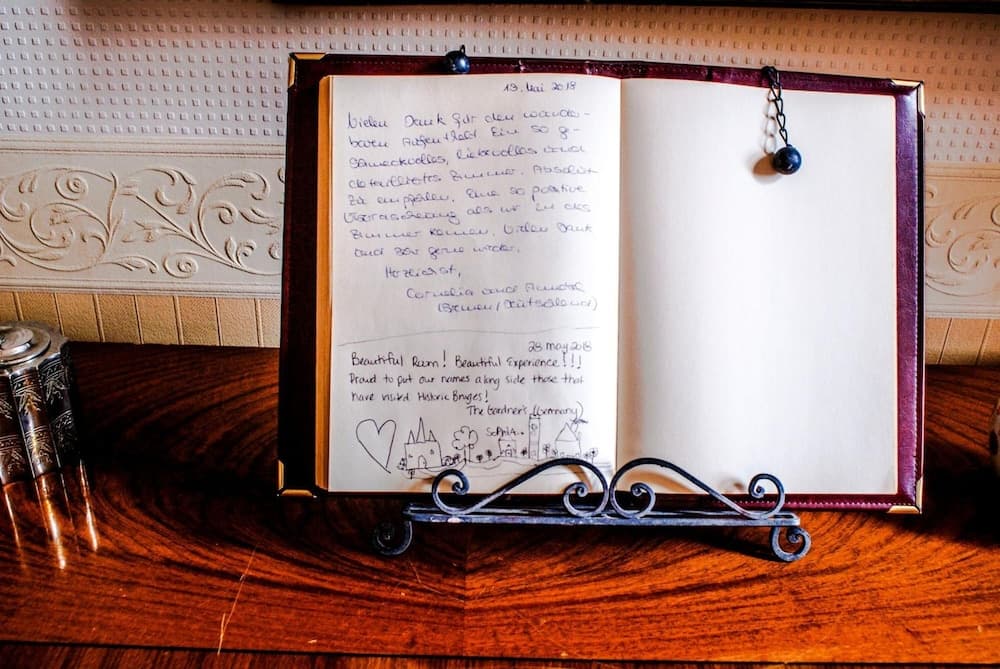 13. Mai 2018
Vielen Dank für den wunder-
baren Aufenthalt. Ein so ge-
schmackvolles, liebevolles und
detailliertes Zimmer. Absolut
zu empfehlen. Eine so positive
Überraschung als wir in das
Zimmer kamen. Vielen Dank
und sehr gerne wieder.
Herzlichst,
Cornelia und
(Bremen/Deutschland)
28 may 2018
Beautiful Room! Beautiful Experience!!!
Proud to put our names along side those that
have visited Historic Bruges!
The Gardner's (Germany)
SOPHIA